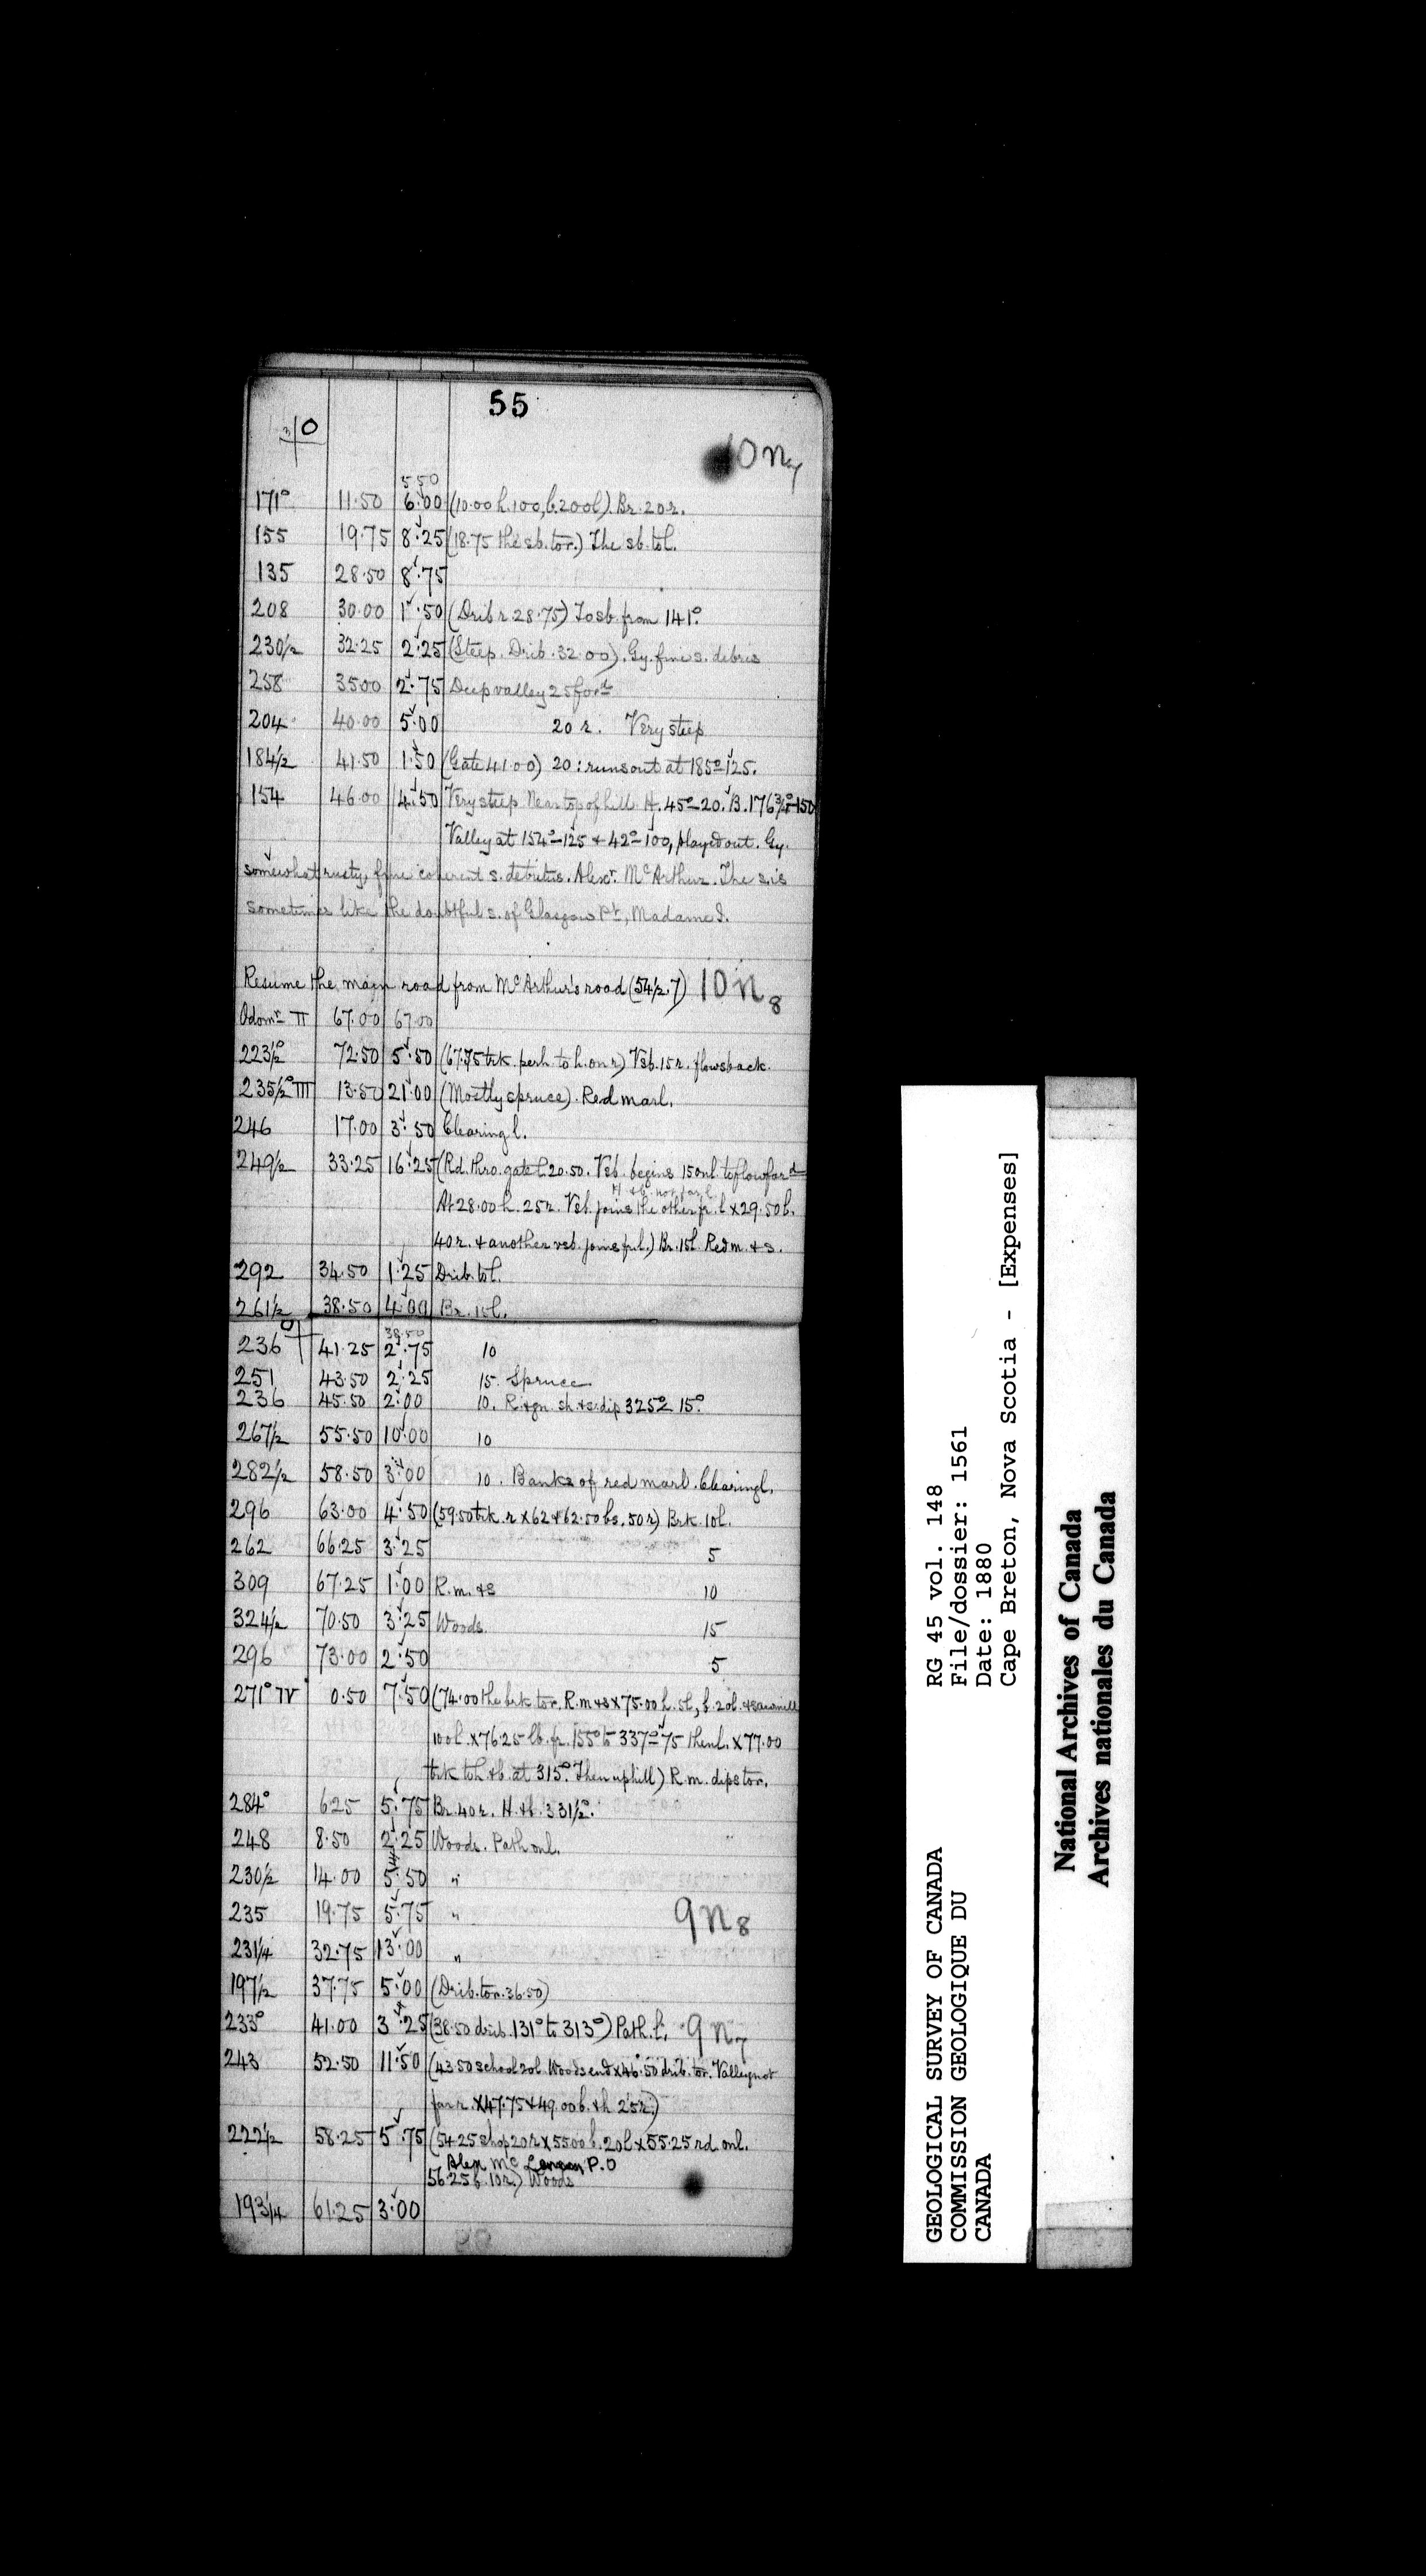 55
0
10 n 7
5 50
171° 11.50 6.00 (10.00 h. 100, b. 200l). Br. 20 r.
155 19.75 8.25 (18.75 the sb. tor.) The sb. tol.
135 28.50 8.75
208 30.00 1.50 (Drib r 28.75) To sb. from 141°
230½ 32.25 2.25 (Steep. Drib. 32.00). Gy. fine s. debris
258 35.00 2.75 Deep valley 25 ford
204 40.00 5.00 20 r. Very steep
184½ 41.50 1.50 (Gate 41.00) 20: runs out at 185°-125.
154 46.00 4.50 Very steep Near top of hill H. 45°-20. B. 176¾°-150
Valley at 154°-125 + 42°-100, played out. Gy.
somewhat rusty, fine coherent s. detritus. Alexr. McArthur. The s. is
sometimes like the doubtful s. of Glasgow Pt, Madame I.
Resume the main road from McArthur's road (54½.7) 10 n 8
Odomr II 67.00 67.00
223½° 72.50 5.50 (67.75 trk. perh. to h. on r) Vsb. 15 r. flows back.
235½° III 13.50 21.00 (Mostly spruce). Red marl.
246 17.00 3.50 Clearing l.
249½ 33.25 16.25 (Rd. thro. gate l. 20.50. Vsb. begins 150 nl. to flow ford
H + b. not far l.
At 28.00 h. 25 r. Vsb. joins the other fr. l x 29.50 b.
40 r. + another vsb. joins fr. l.) Br. 15l. Red m. + s.
292 34.50 1.25 Drib. tol.
261½ 38.50 4.00 Br. 15l.
38.50
236 41.25 2.75 10
251 43.50 2.25 15. Spruce
236 45.50 2.00 10. R + gn. sh + s. dip 325° 15°
267½ 55.50 10.00 10
282½ 58.50 3.00 10. Banks of red marl. Clearing l.
296 63.00 4.50 (59.50 trk. r x 62 + 62.50 bs. 50 r) Brk. 10l.
262 66.25 3.25 5
309 67.25 1.00 R. m. + s 10
324½ 70.50 3.25 Woods 15
296 73.00 2.50 5
271° IV 0.50 7.50 (74.00 the brk tor. R. m + s x 75.00 h. 5l, b. 20l. + sawmill
100l. x 76.25 lb. fr. 155° to 337°-75 then l. x 77.00
trk to h + b. at 315°. Then uphill) R. m. dips tor.
284° 6.25 5.75 Br. 40 r. H. + b. 331½°.
248 8.50 2.25 Woods. Path on l.
230½ 14.00 5.50 "
235 19.75 5.75 " 9 n 8
231¼ 32.75 13.00 "
197½ 37.75 5.00 (Drib. tor. 36.50)
233° 41.00 3.25 (38.50 drib. 131° to 313°) Path. l. 9 n 7
243 52.50 11.50 (43.50 school 20l. Woods end x 46.50 drib. tor. Valley not
far r. x 47.75 + 49.00 b. + h 25 r.)
222½ 58.25 5.75 (54.25 shop 20 r x 55.00 h. 20l x 55.25 rd. on l.
Alex Mc P.O
56.25 b. 10 r.) Woods
193¼ 61.25 3.00
GEOLOGICAL SURVEY OF CANADA
COMMISSION GEOLOGIQUE DU
CANADA
RG 45 vol. 148
File/dossier: 1561
Date: 1880
Cape Breton, Nova Scotia - [Expenses]
National Archives of Canada
Archives nationales du Canada